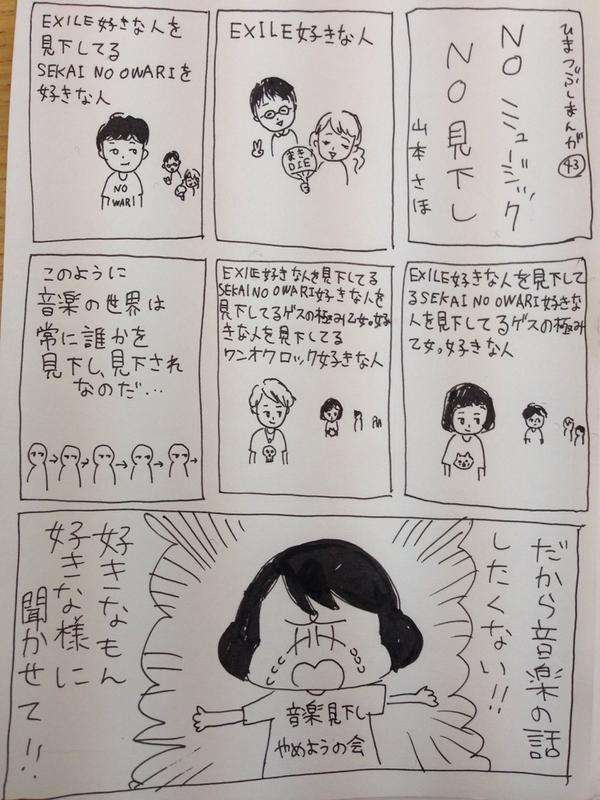 ひまつぶしまんが 43
NO ミュージック
NO 見下し
山本さほ
EXILE好きな人
まさDIE
EXILE好きな人を
見下してる
SEKAI NO OWARIを
好きな人
NO
WARI
EXILE好きな人を見下して
るSEKAI NO OWARI好きな
人を見下してるゲスの極み
乙女。好きな人
EXILE好きな人を見下してる
SEKAI NO OWARI好きな人を
見下してるゲスの極み乙女。好
きな人を見下してる
ワンオクロック好きな人
このように
音楽の世界は
常に誰かを
見下し、見下され
なのだ…
だから音楽の話
したくない!!
音楽見下し
やめようの会
好きなもん
好きな様に
聞かせて!!